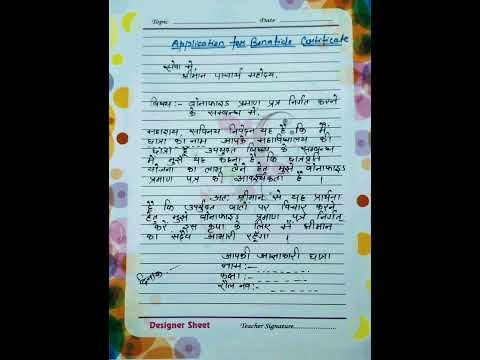 Topic Date
Application for Bonafide Certificate
सेवा में,
श्रीमान प्राचार्य महोदय,
विषय :- बोनाफाइड प्रमाण पत्र निर्गत करने
के सम्बन्ध में।
महाशय, सविनय निवेदन यह है कि मैं
छात्रा का नाम आपके महाविद्यालय की
छात्रा हूँ उपर्युक्त विषय के सम्बन्ध
में मुझे यह कहना है कि छात्रवृत्ति
योजना का लाभ लेने हेतु मुझे बोनाफाइड
प्रमाण पत्र की आवश्यकता है ।
अतः श्रीमान से यह प्रार्थना
है कि उपर्युक्त बातों पर विचार करने
हेतु मुझे बोनाफाइड प्रमाण पत्र निर्गत
करें इस कृपा के लिए मैं श्रीमान
का सदैव आभारी रहूँगा ।
आपकी आज्ञाकारी छात्रा
नाम:-
दिनांक कक्षा:-
रौल नव:-
Designer Sheet Teacher Signature